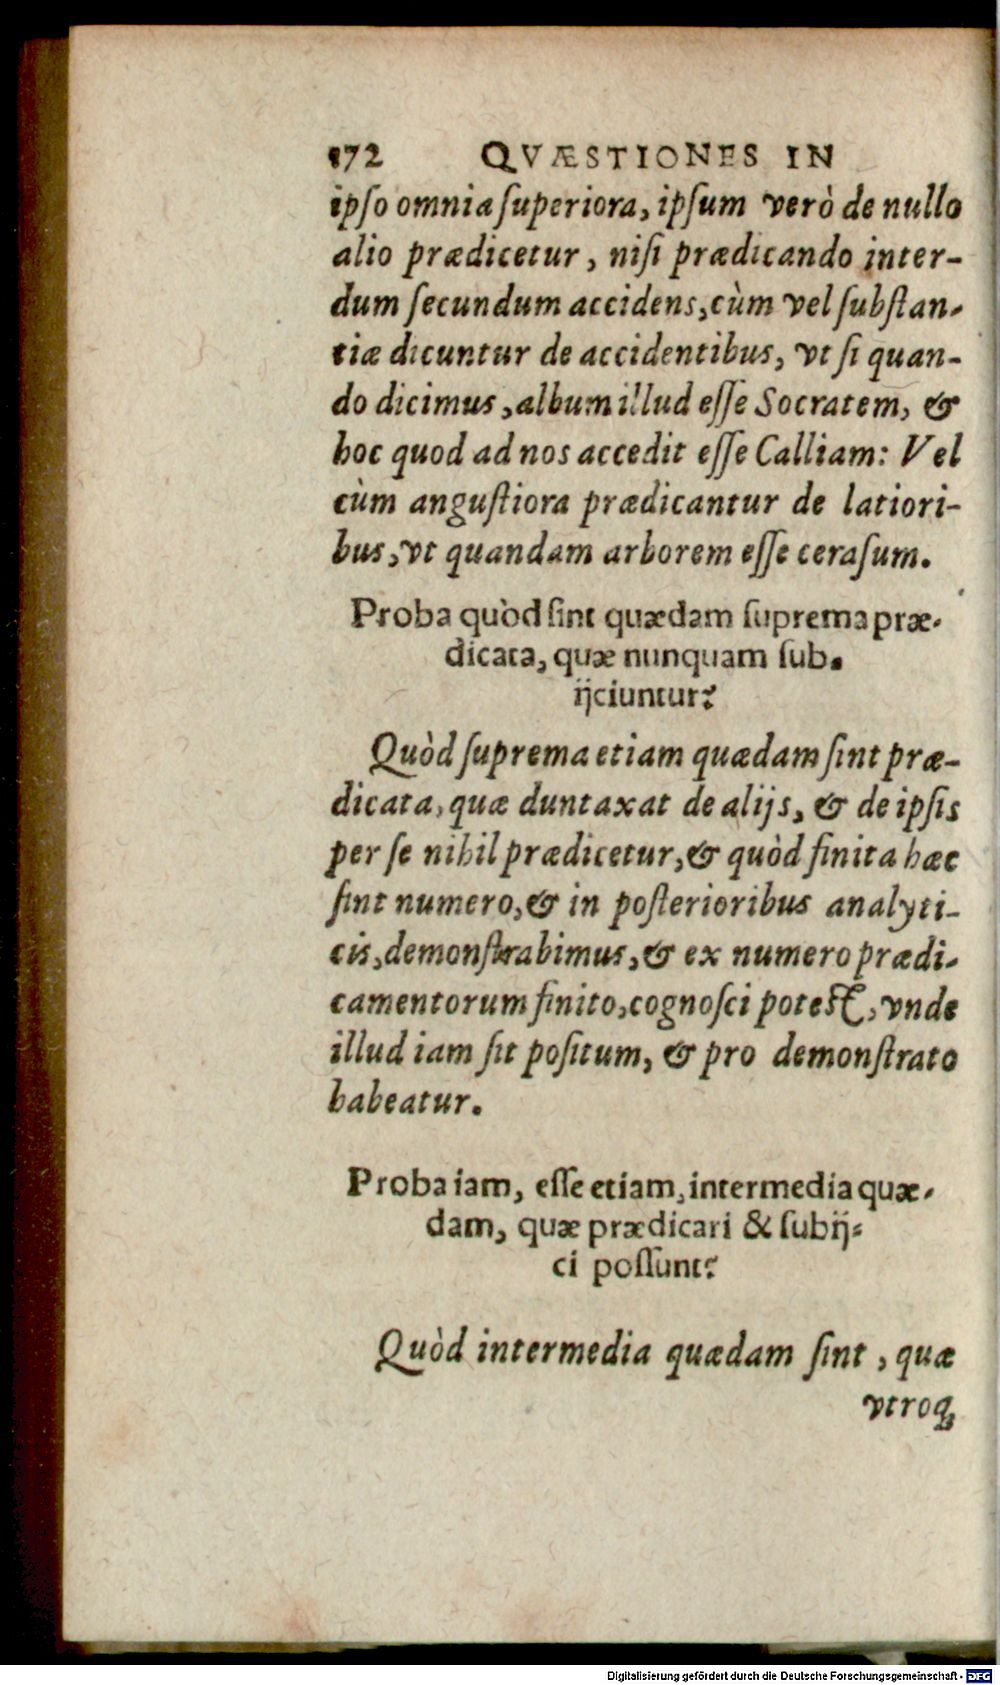 172 QVÆSTIONES IN
ipso omnia superiora, ipsum verò de nullo
alio prædicetur, nisi prædicando inter-
dum secundum accidens, cùm vel substan-
tiæ dicuntur de accidentibus, vt si quan-
do dicimus, album illud esse Socratem, &
hoc quod ad nos accedit esse Calliam: Vel
cùm angustiora prædicantur de latiori-
bus, vt quandam arborem esse cerasum.
Proba quòd sint quædam suprema præ-
dicata, quæ nunquam sub-
ijciuntur?
Quòd suprema etiam quædam sint præ-
dicata, quæ duntaxat de alijs, & de ipsis
per se nihil prædicetur, & quòd finita hæc
sint numero, & in posterioribus analyti-
cis, demonstrabimus, & ex numero prædi-
camentorum finito, cognosci potest, vnde
illud iam sit positum, & pro demonstrato
habeatur.
Proba iam, esse etiam, intermedia quæ-
dam, quæ prædicari & subij-
ci possunt?
Quòd intermedia quædam sint, quæ
vtroq́;
Digitalisierung gefördert durch die Deutsche Forschungsgemeinschaft - DFG